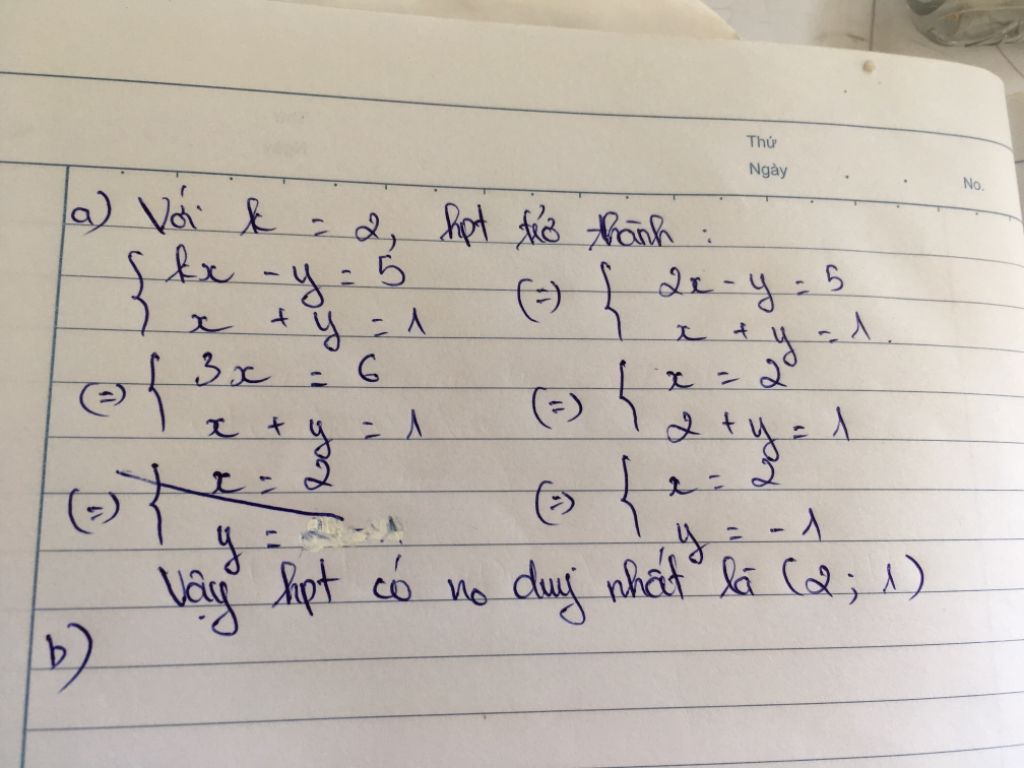 Thứ
Ngày
No.
a) Với k = 2, hpt trở thành :
{ kx - y = 5 (=) { 2x - y = 5
x + y = 1 x + y = 1.
(=) { 3x = 6 (=) { x = 2
x + y = 1 2 + y = 1
(=) { x = 2 (=) { x = 2
y = y = - 1
Vậy hpt có no duy nhất là (2 ; 1)
b)